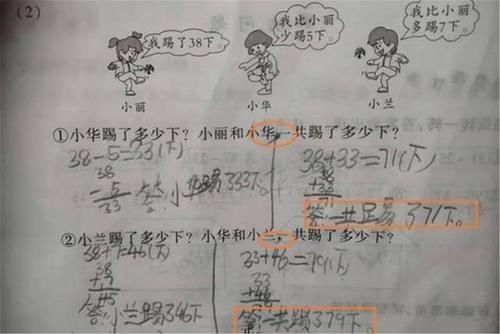 (2)
我踢了38下。
我比小丽
少踢5下。
我比小丽
多踢7下。
小丽
小华
小兰
①小华踢了多少下？小丽和小华一共踢了多少下？
38-5=33(下)
38
-5
33
答:小华踢了33下。
38+33=71(下)
38
+33
71
答:一共踢了71下。
②小兰踢了多少下？小华和小兰，共踢了多少下？
38+7=45(下)
38
+7
45
答:小兰踢了46下
33+46=79(下)
33
+46
答:一共踢了79下。